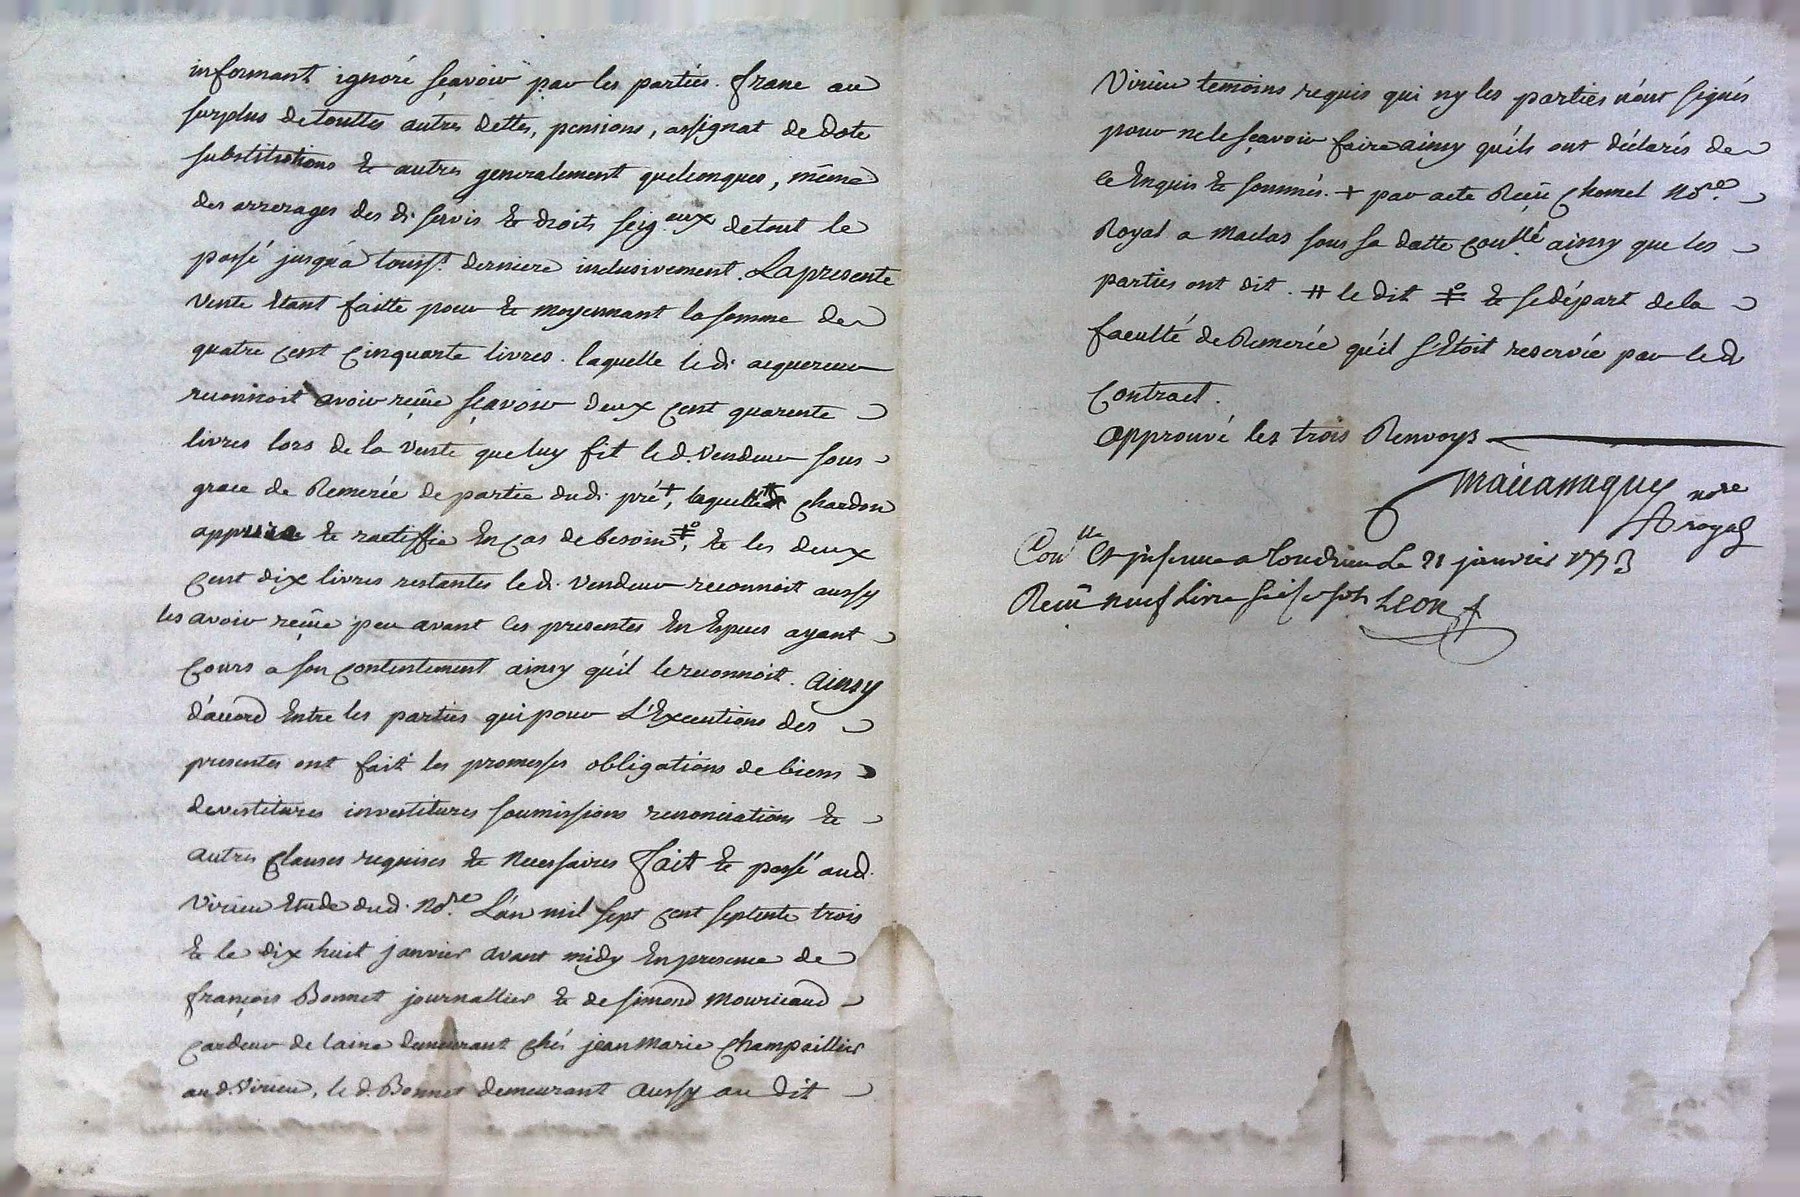 informant ignoré sçavoir par les parties. franc au
surplus de touttes autres dettes, pensions, assignat de dote
substitutions & autres generalement quelconques, même
des arrerages des d. servis & droits seig.aux de tout le
passé jusqu'á touss.t derniere inclusivement. La presente
vente etant faitte pour & moyennant la somme de
quatre cent cinquante livres. laquelle le d. acquereur
reconnoit avoir reçûe sçavoir deux cent quarente
livres lors de la vente que luy fit le d. vendeur sous
grace de Remerée de partie dud. pré +, laquelle # chardon
approuve & ractiffie En cas de besoin ⧧, & les deux
cent dix livres restantes le d. vendeur reconnoit aussy
les avoir reçûe peu avant ces presentes En Especes ayant
cours a son contentement ainsy qu'il le reconnoit. Ainsy
d'accord Entre les parties qui pour L'Executions des
presentes ont fait les promesses obligations de biens
devestitures investitures soumissions renonciations &
autres clauses requises & necessaires fait & passé aud.
Virieu Etude dud. No.re L'an mil sept cent septente trois
& le dix huit janvier avant midy En presence de
françois Bonnet journallier & de simond Mouricaud
cardeur de laine demeurant ché jean marie Champaillier
aud. Virieu, le d. Bonnet demeurant aussy au dit
Virieu temoins requis qui ny les parties n'ont signés
pour ne le sçavoir faire ainsy qu'ils ont déclarés de
ce Enquis & sommés. + par acte Reçû Chomel No.re
Royal a Maclas sous sa datte coull.é ainsy que les
parties ont dit. # le dit ⧧ & se départ de la
faculté de Remerée qu'il s'Etoit reservée par le d
Contract.
approuvé les trois Renvoys
no.re
royal
Con.lle Et a Condrieu Le 21 janvier 1773
Reçû neuf Livre sols LEON